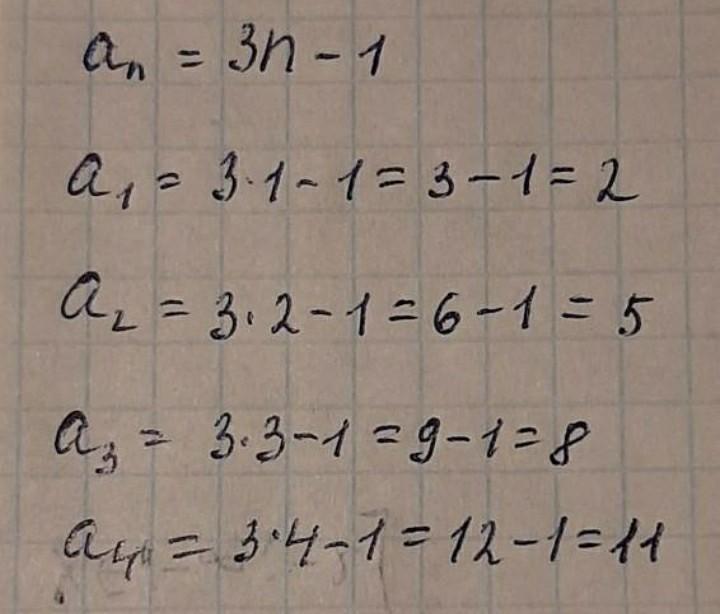 aₙ = 3n - 1
a₁ = 3·1 - 1 = 3 - 1 = 2
a₂ = 3·2 - 1 = 6 - 1 = 5
a₃ = 3·3 - 1 = 9 - 1 = 8
a₄ = 3·4 - 1 = 12 - 1 = 11